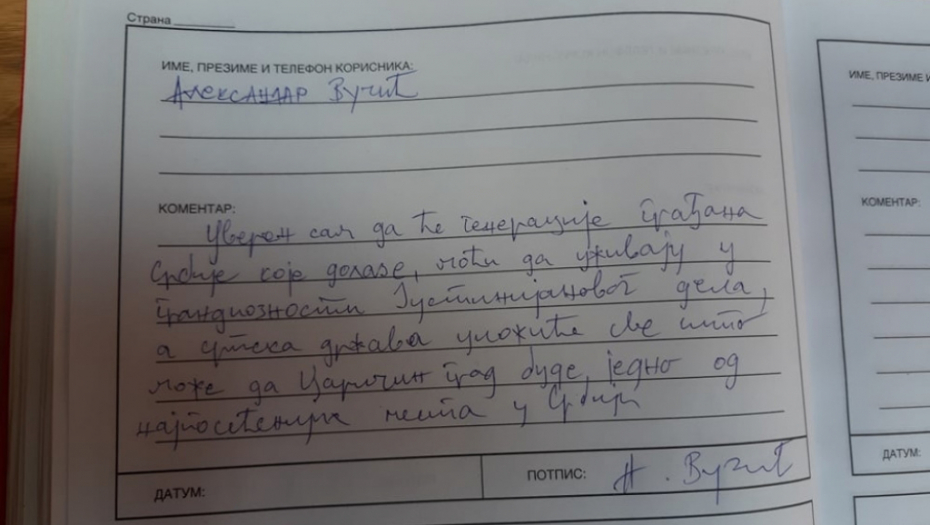 Страна
ИМЕ, ПРЕЗИМЕ И ТЕЛЕФОН КОРИСНИКА:
Александар Вучић
КОМЕНТАР:
Уверен сам да ће генерације грађана
Србије које долазе, моћи да уживају у
грандиозности Јустинијановог дела,
а српска држава уложиће све што
може да Царичин град буде, једно од
најпосећенијих места у Србији
ДАТУМ:
ПОТПИС: А. Вучић
ИМЕ, ПРЕЗИМЕ И
КОМЕНТАР:
ДАТУМ: